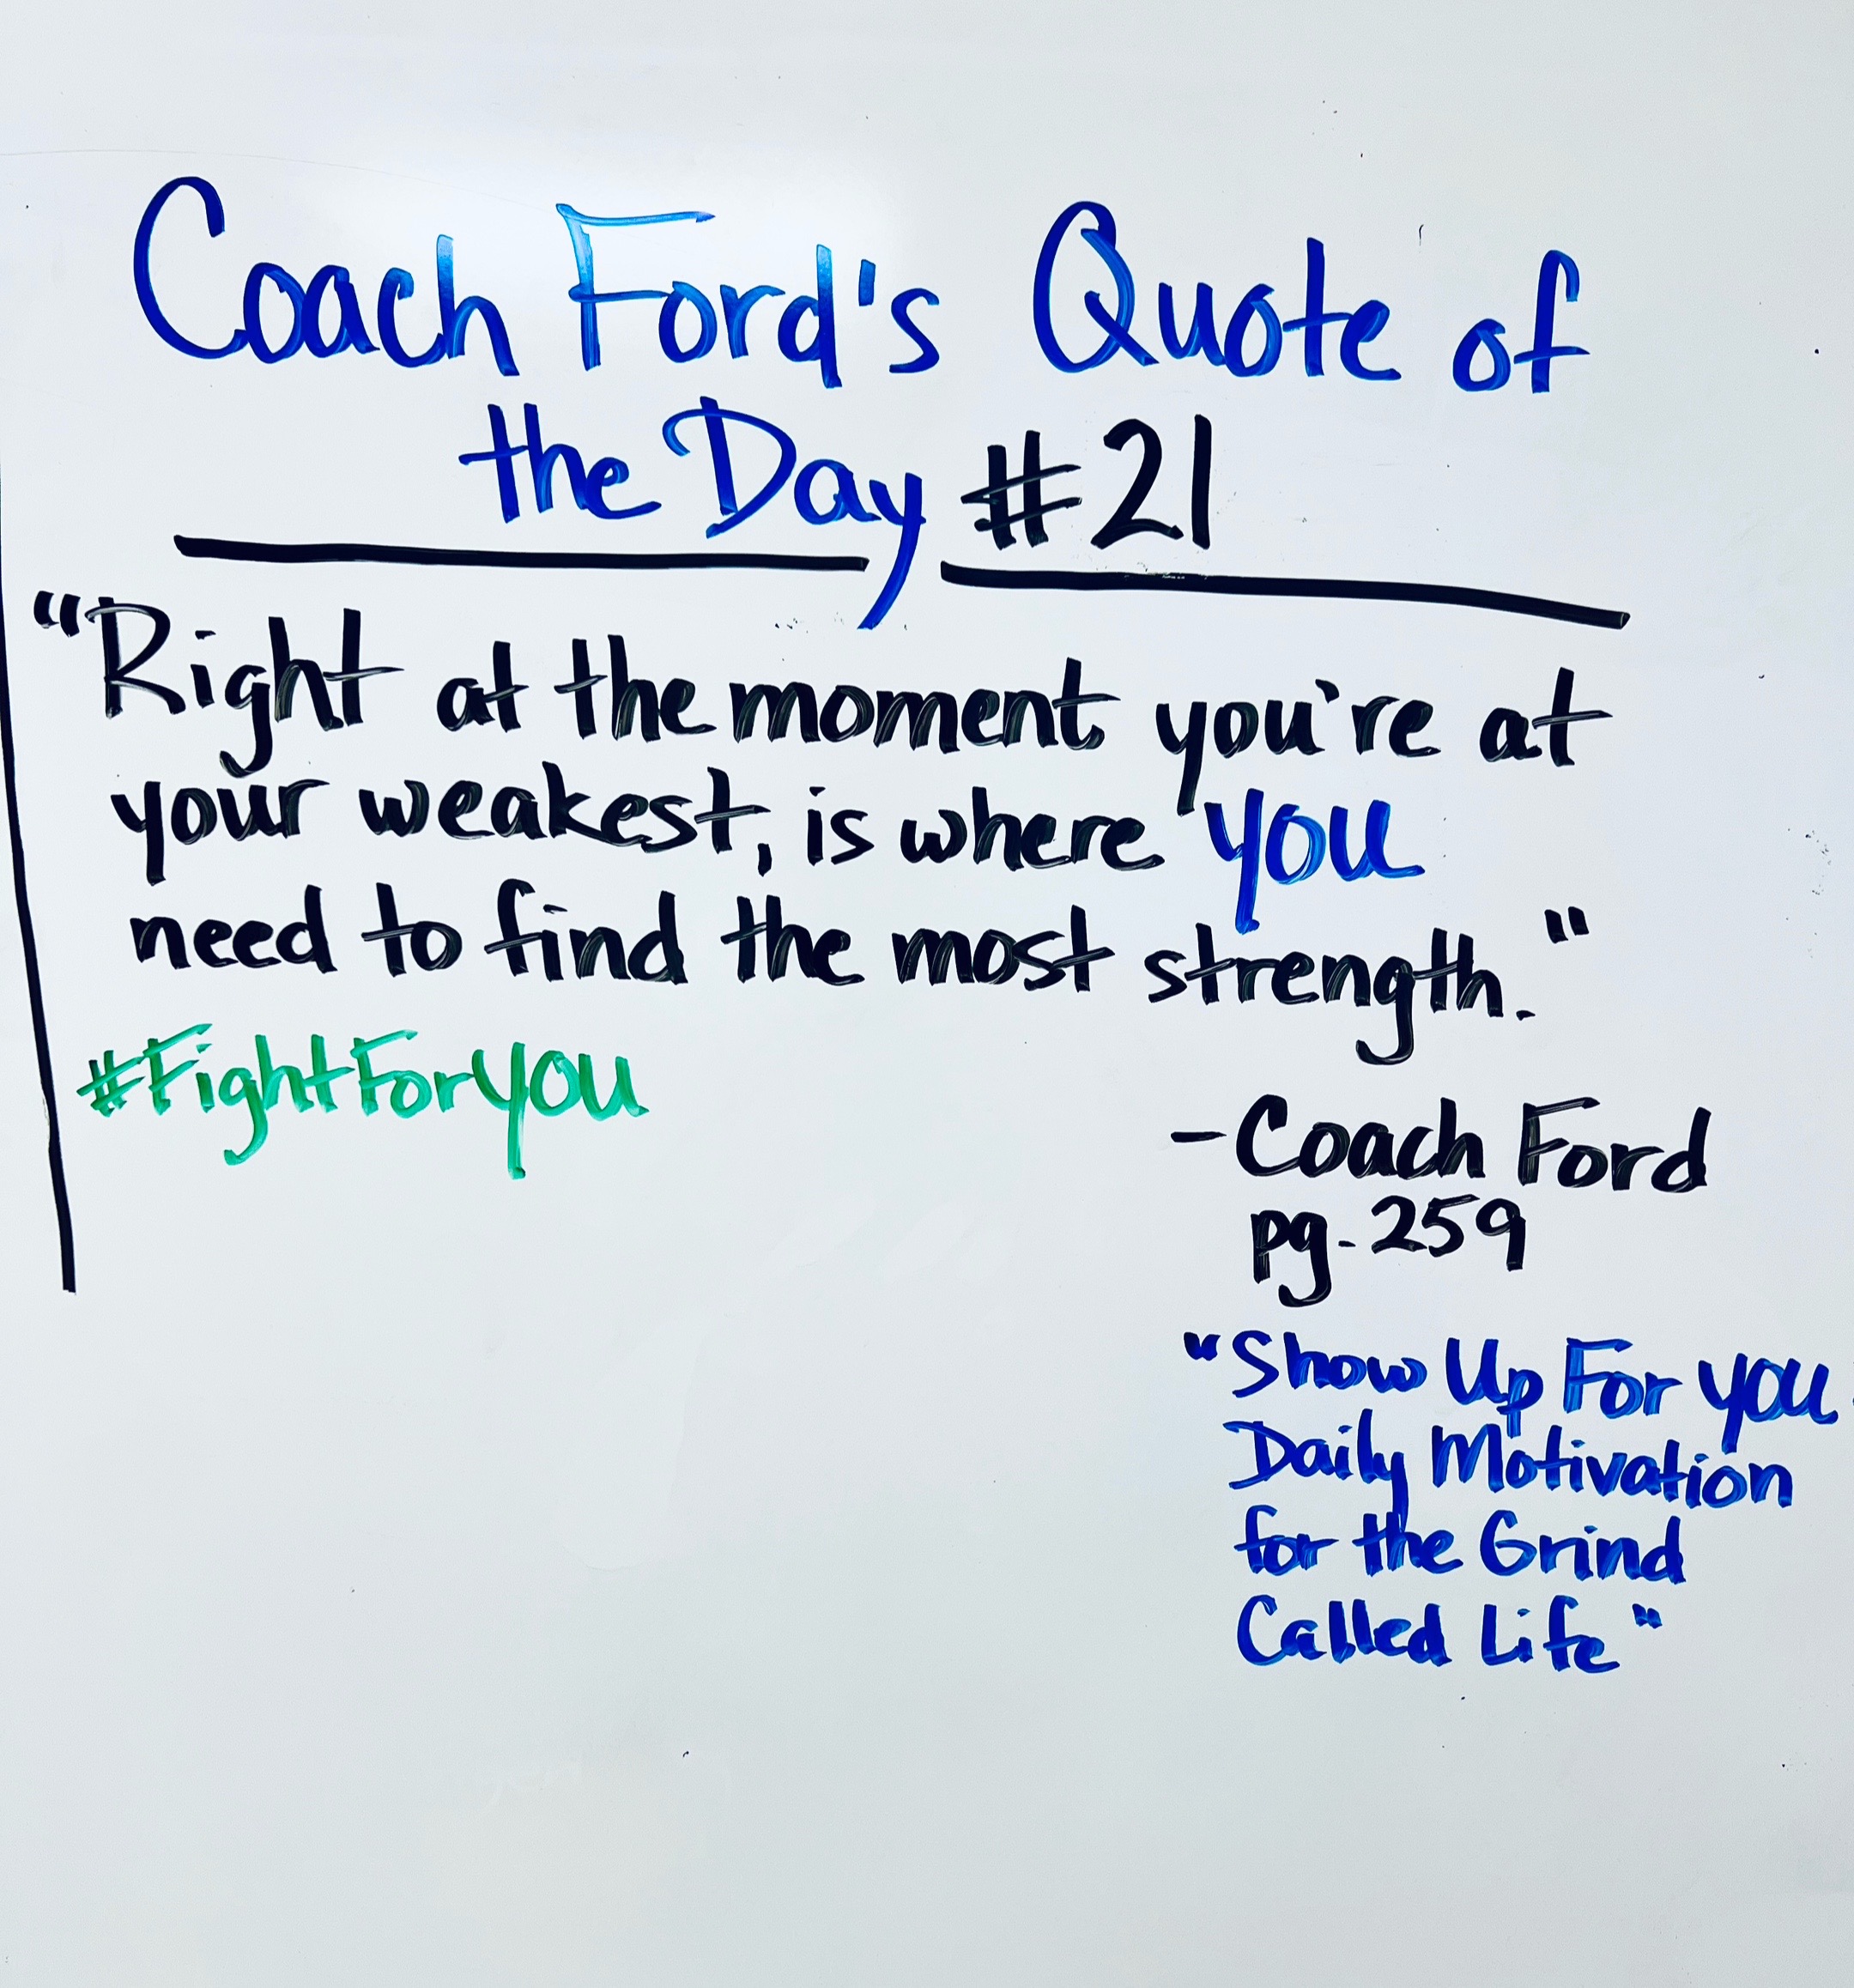 Coach Ford's Quote of
the Day #21
"Right at the moment you're at
your weakest, is where you
need to find the most strength."
#FightForyou
-Coach Ford
pg. 259
"Show Up For you
Daily Motivation
for the Grind
Called Life"